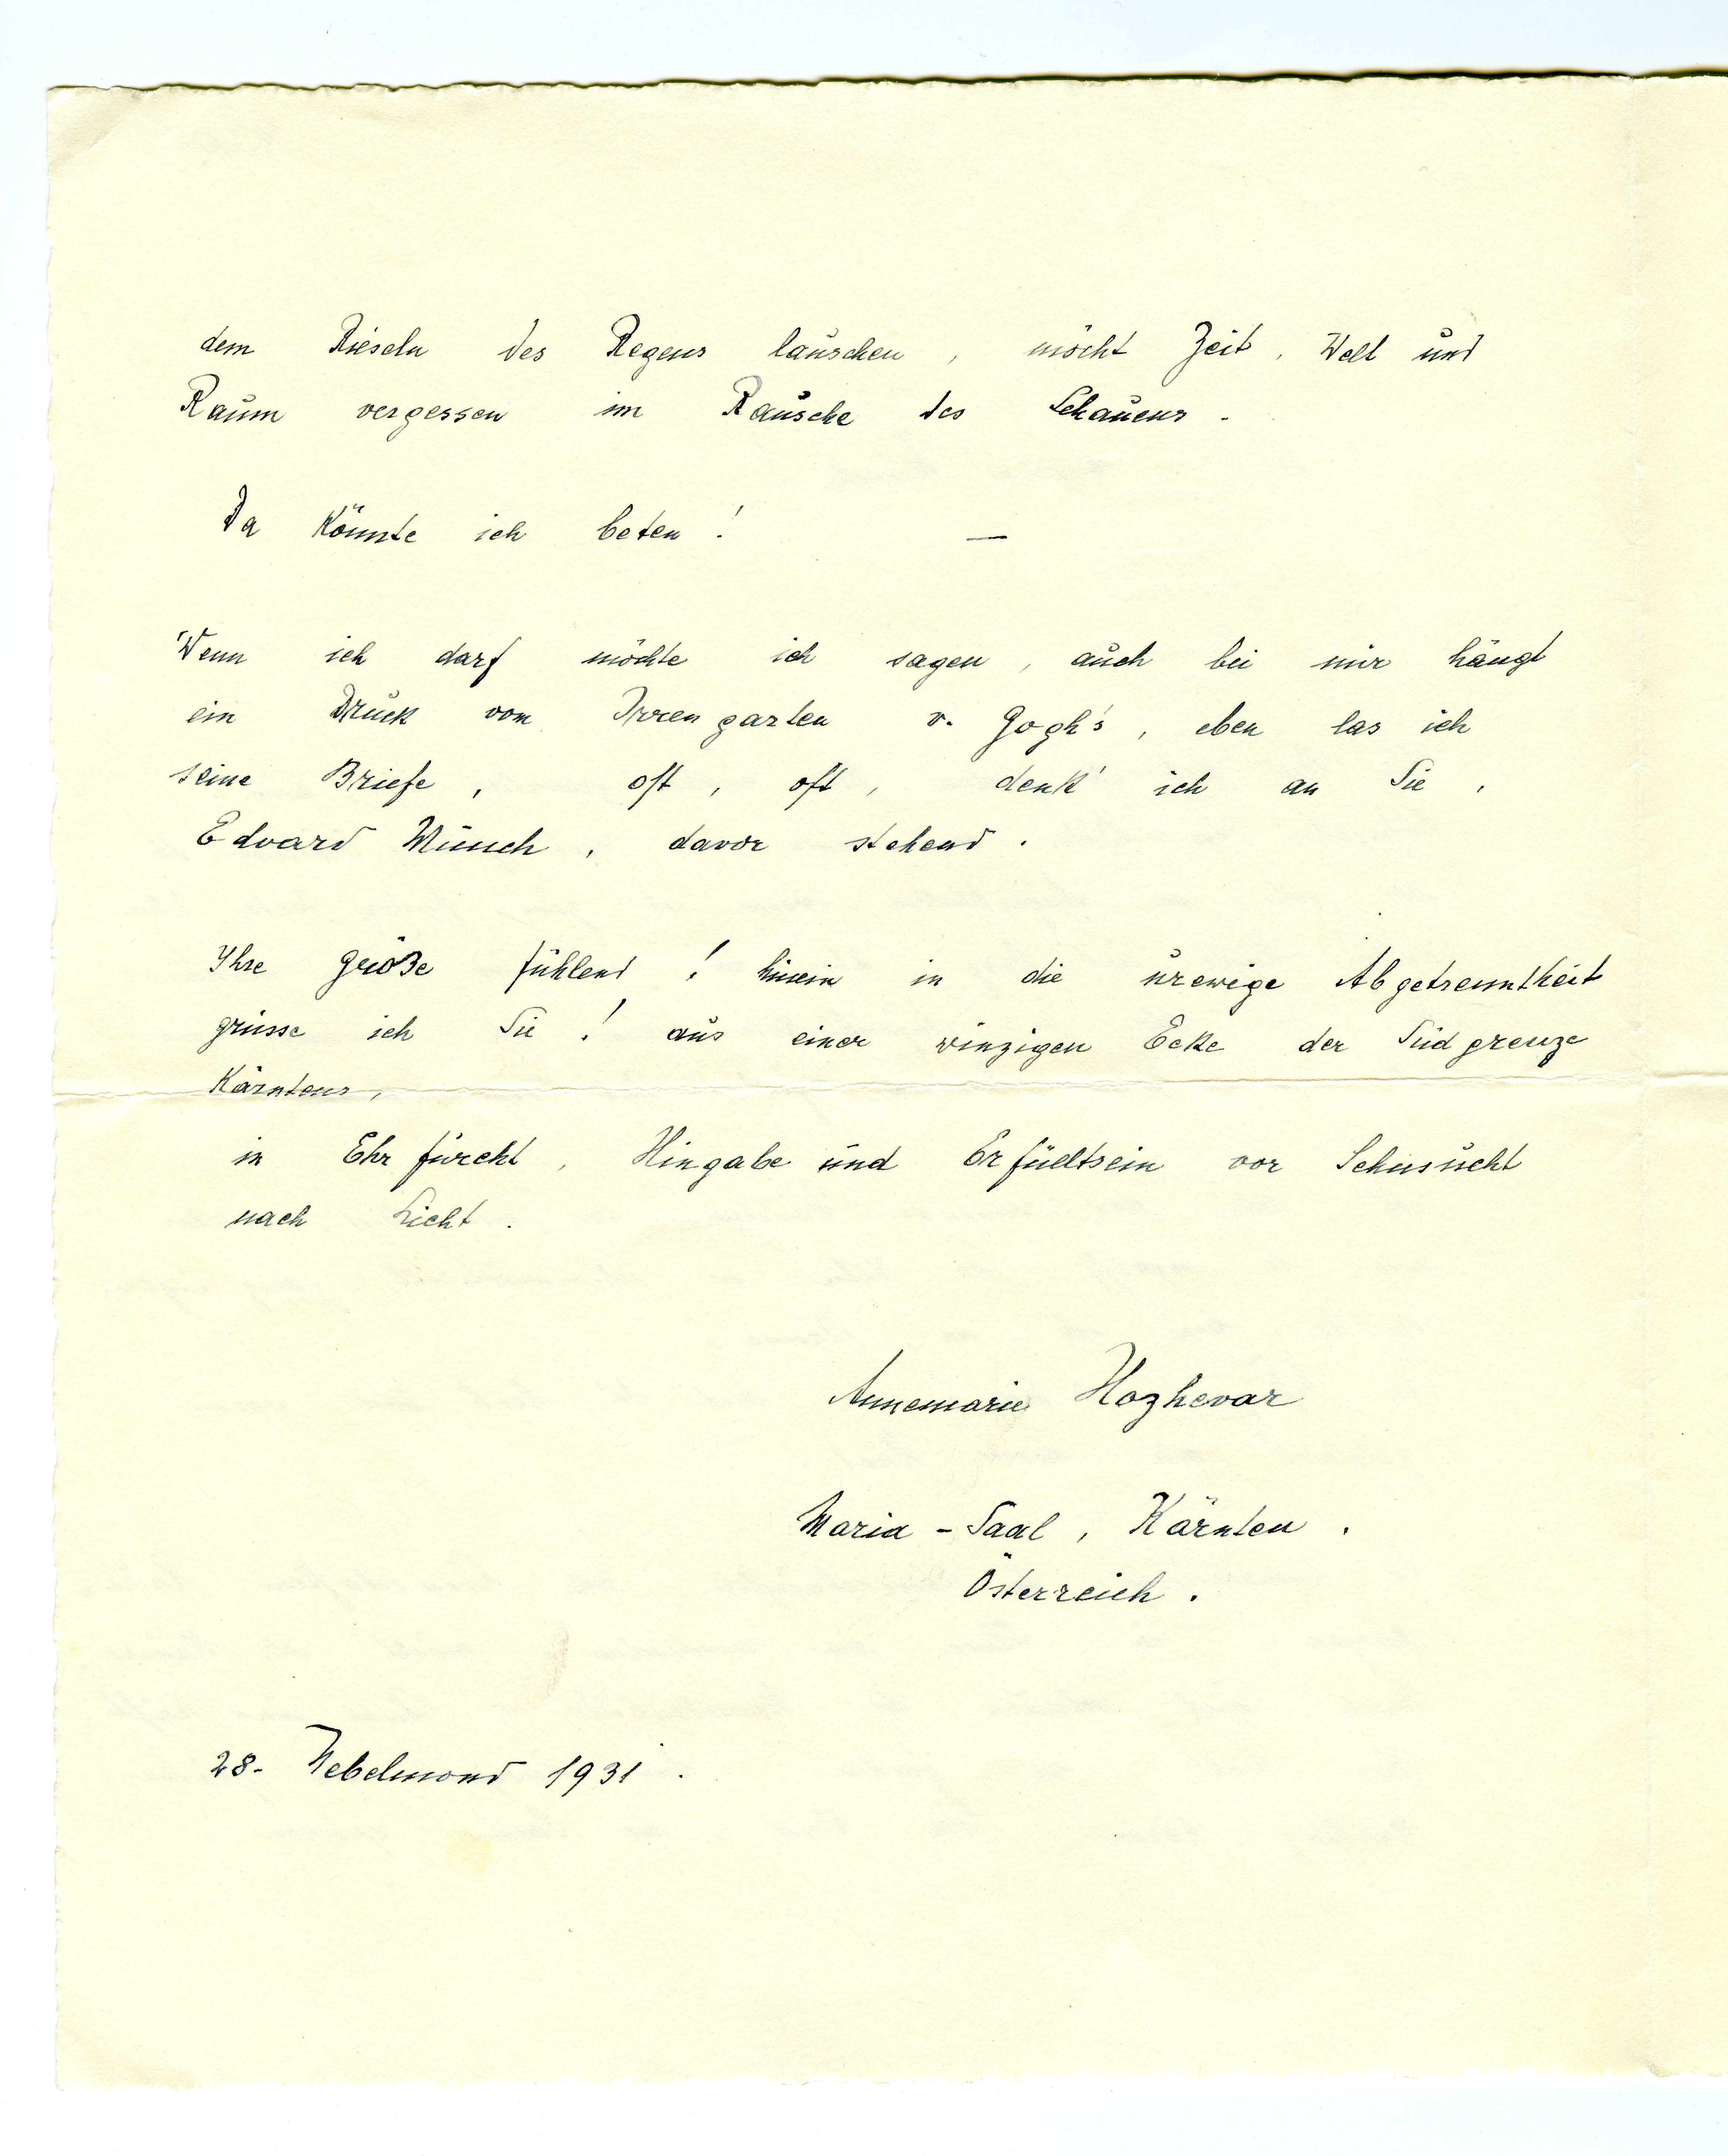 dem Rieseln des Regens lauschen, möcht Zeit, Welt und
Raum vergessen im Rausche des Schauens.
Da könnte ich beten! —
Wenn ich darf möchte ich sagen, auch bei mir hängt
ein Druck vom Irrengarten v. Gogh's, eben las ich
seine Briefe, oft, oft, denk' ich an Sie,
Edvard Munch, davor stehend.
Ihre Größe fühlend! hinein in die urewige Abgetrenntheit
grüsse ich Sie! aus einer winzigen Ecke der Südgrenze
Kärntens,
in Ehrfurcht, Hingabe und Erfülltsein vor Sehnsucht
nach Licht.
Annemarie Hozhevar
Maria-Saal, Kärnten.
Österreich.
28. Nebelmond 1931.